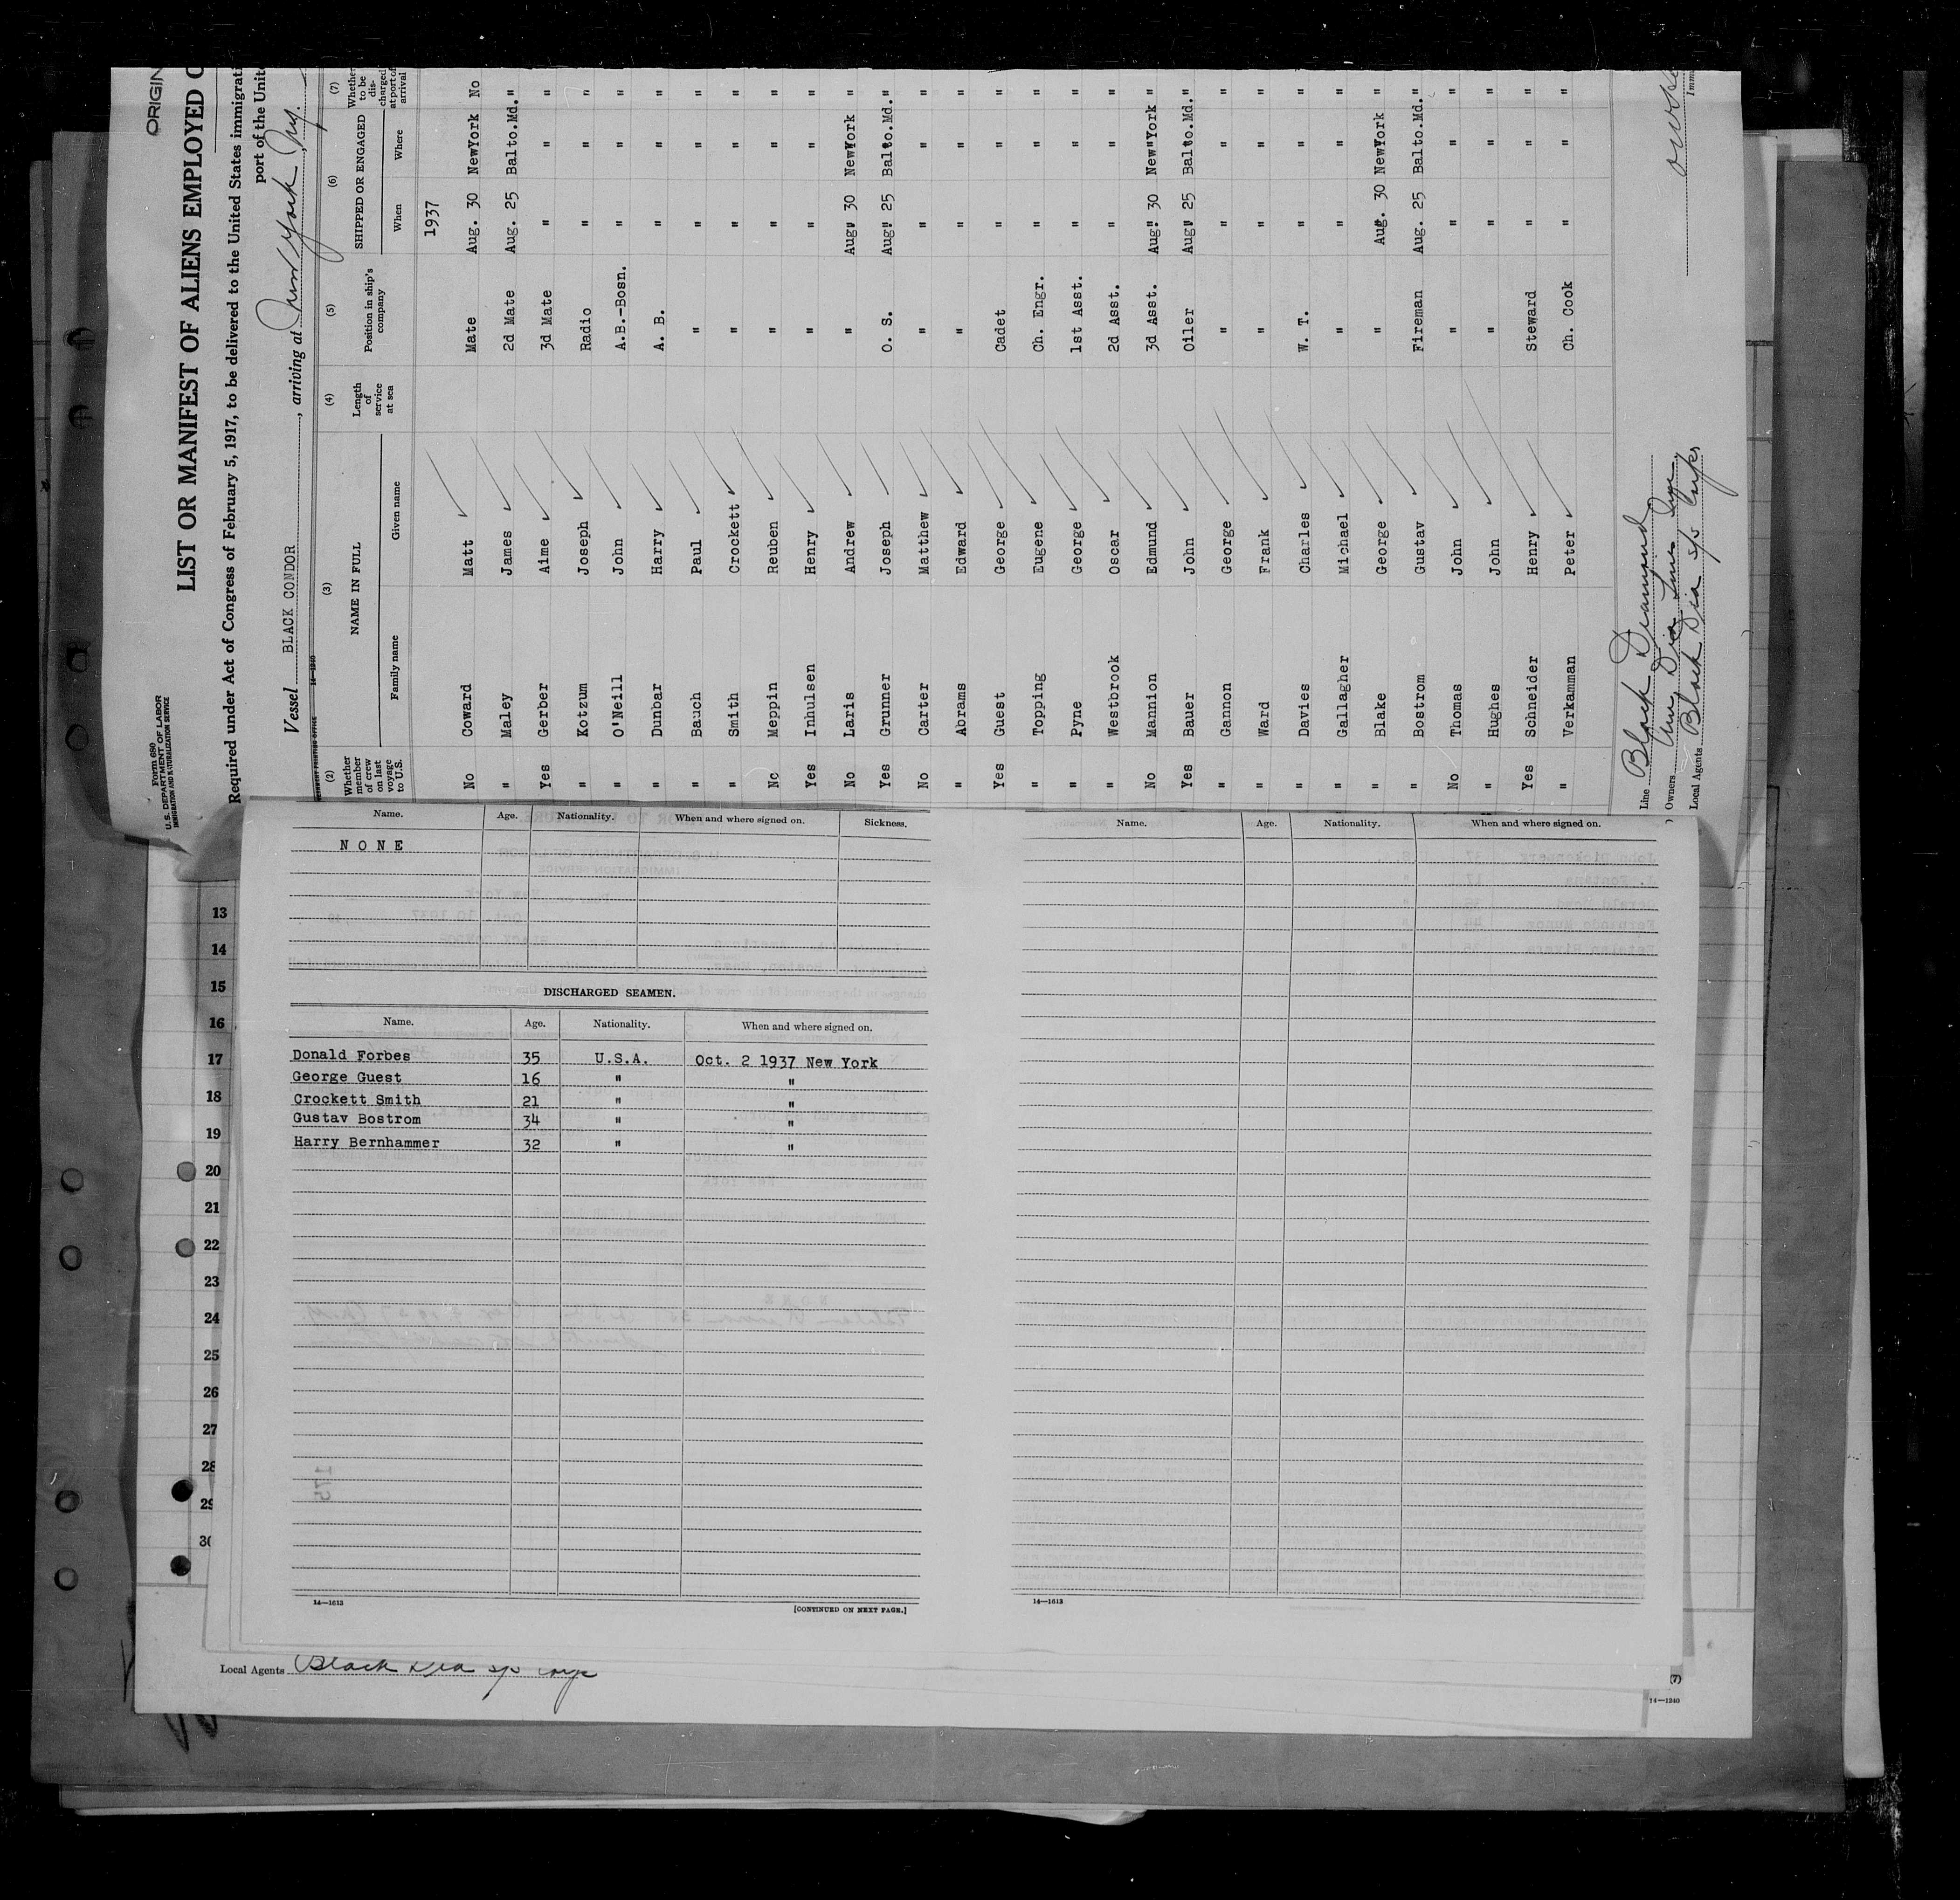 ORIGIN
Form 680
U. S. DEPARTMENT OF LABOR
IMMIGRATION AND NATURALIZATION SERVICE
LIST OR MANIFEST OF ALIENS EMPLOYED O
Required under Act of Congress of February 5, 1917, to be delivered to the United States immigrati
port of the Unite
Vessel BLACK CONDOR, arriving at New York Ny.
14—1240
(2) (3) (4) (5) (6) (7)
Whether member of crew on last voyage to U.S. NAME IN FULL Length of service at sea Position in ship's company SHIPPED OR ENGAGED Whether to be discharged at port of arrival
Family name Given name When Where
1937
No Coward Matt Mate Aug. 30 NewYork No
" Maley James 2d Mate Aug. 25 Balto.Md. "
Yes Gerber Aime 3d Mate " " "
" Kotzum Joseph Radio " " "
" O'Neill John A.B.-Bosn. " " "
" Dunbar Harry A. B. " " "
" Bauch Paul " " " "
" Smith Crockett " " " "
No Meppin Reuben " " " "
Yes Inhulsen Henry " " " "
No Laris Andrew " Aug. 30 NewYork "
Yes Grunner Joseph O. S. Aug. 25 Balto.Md. "
No Carter Matthew " " " "
" Abrams Edward " " " "
Yes Guest George Cadet " " "
" Topping Eugene Ch. Engr. " " "
" Pyne George 1st Asst. " " "
" Westbrook Oscar 2d Asst. " " "
No Mannion Edmund 3d Asst. Aug. 30 New York "
Yes Bauer John Oiler Aug. 25 Balto.Md. "
" Gannon George " " " "
" Ward Frank " " " "
" Davies Charles W. T. " " "
" Gallagher Michael " " " "
" Blake George " Aug. 30 NewYork "
" Bostrom Gustav Fireman Aug. 25 Balto.Md. "
No Thomas John " " " "
" Hughes John " " " "
Yes Schneider Henry Steward " " "
" Verkamman Peter Ch. Cook " " "
Line Black Diamond
Owners Amer Dia Lines Inc
Local Agents Black Dia s/s Corps
Name. Age. Nationality. When and where signed on. Sickness.
NONE
DISCHARGED SEAMEN.
Name. Age. Nationality. When and where signed on.
Donald Forbes 35 U.S.A. Oct. 2 1937 New York
George Guest 16 " "
Crockett Smith 21 " "
Gustav Bostrom 34 " "
Harry Bernhammer 32 " "
14—1613
[CONTINUED ON NEXT PAGE.]
Name. Age. Nationality. When and where signed on.
14—1613
13
14
15
16
17
18
19
20
21
22
23
24
25
26
27
28
29
30
Local Agents Black Dia s/s Corps
14—1240